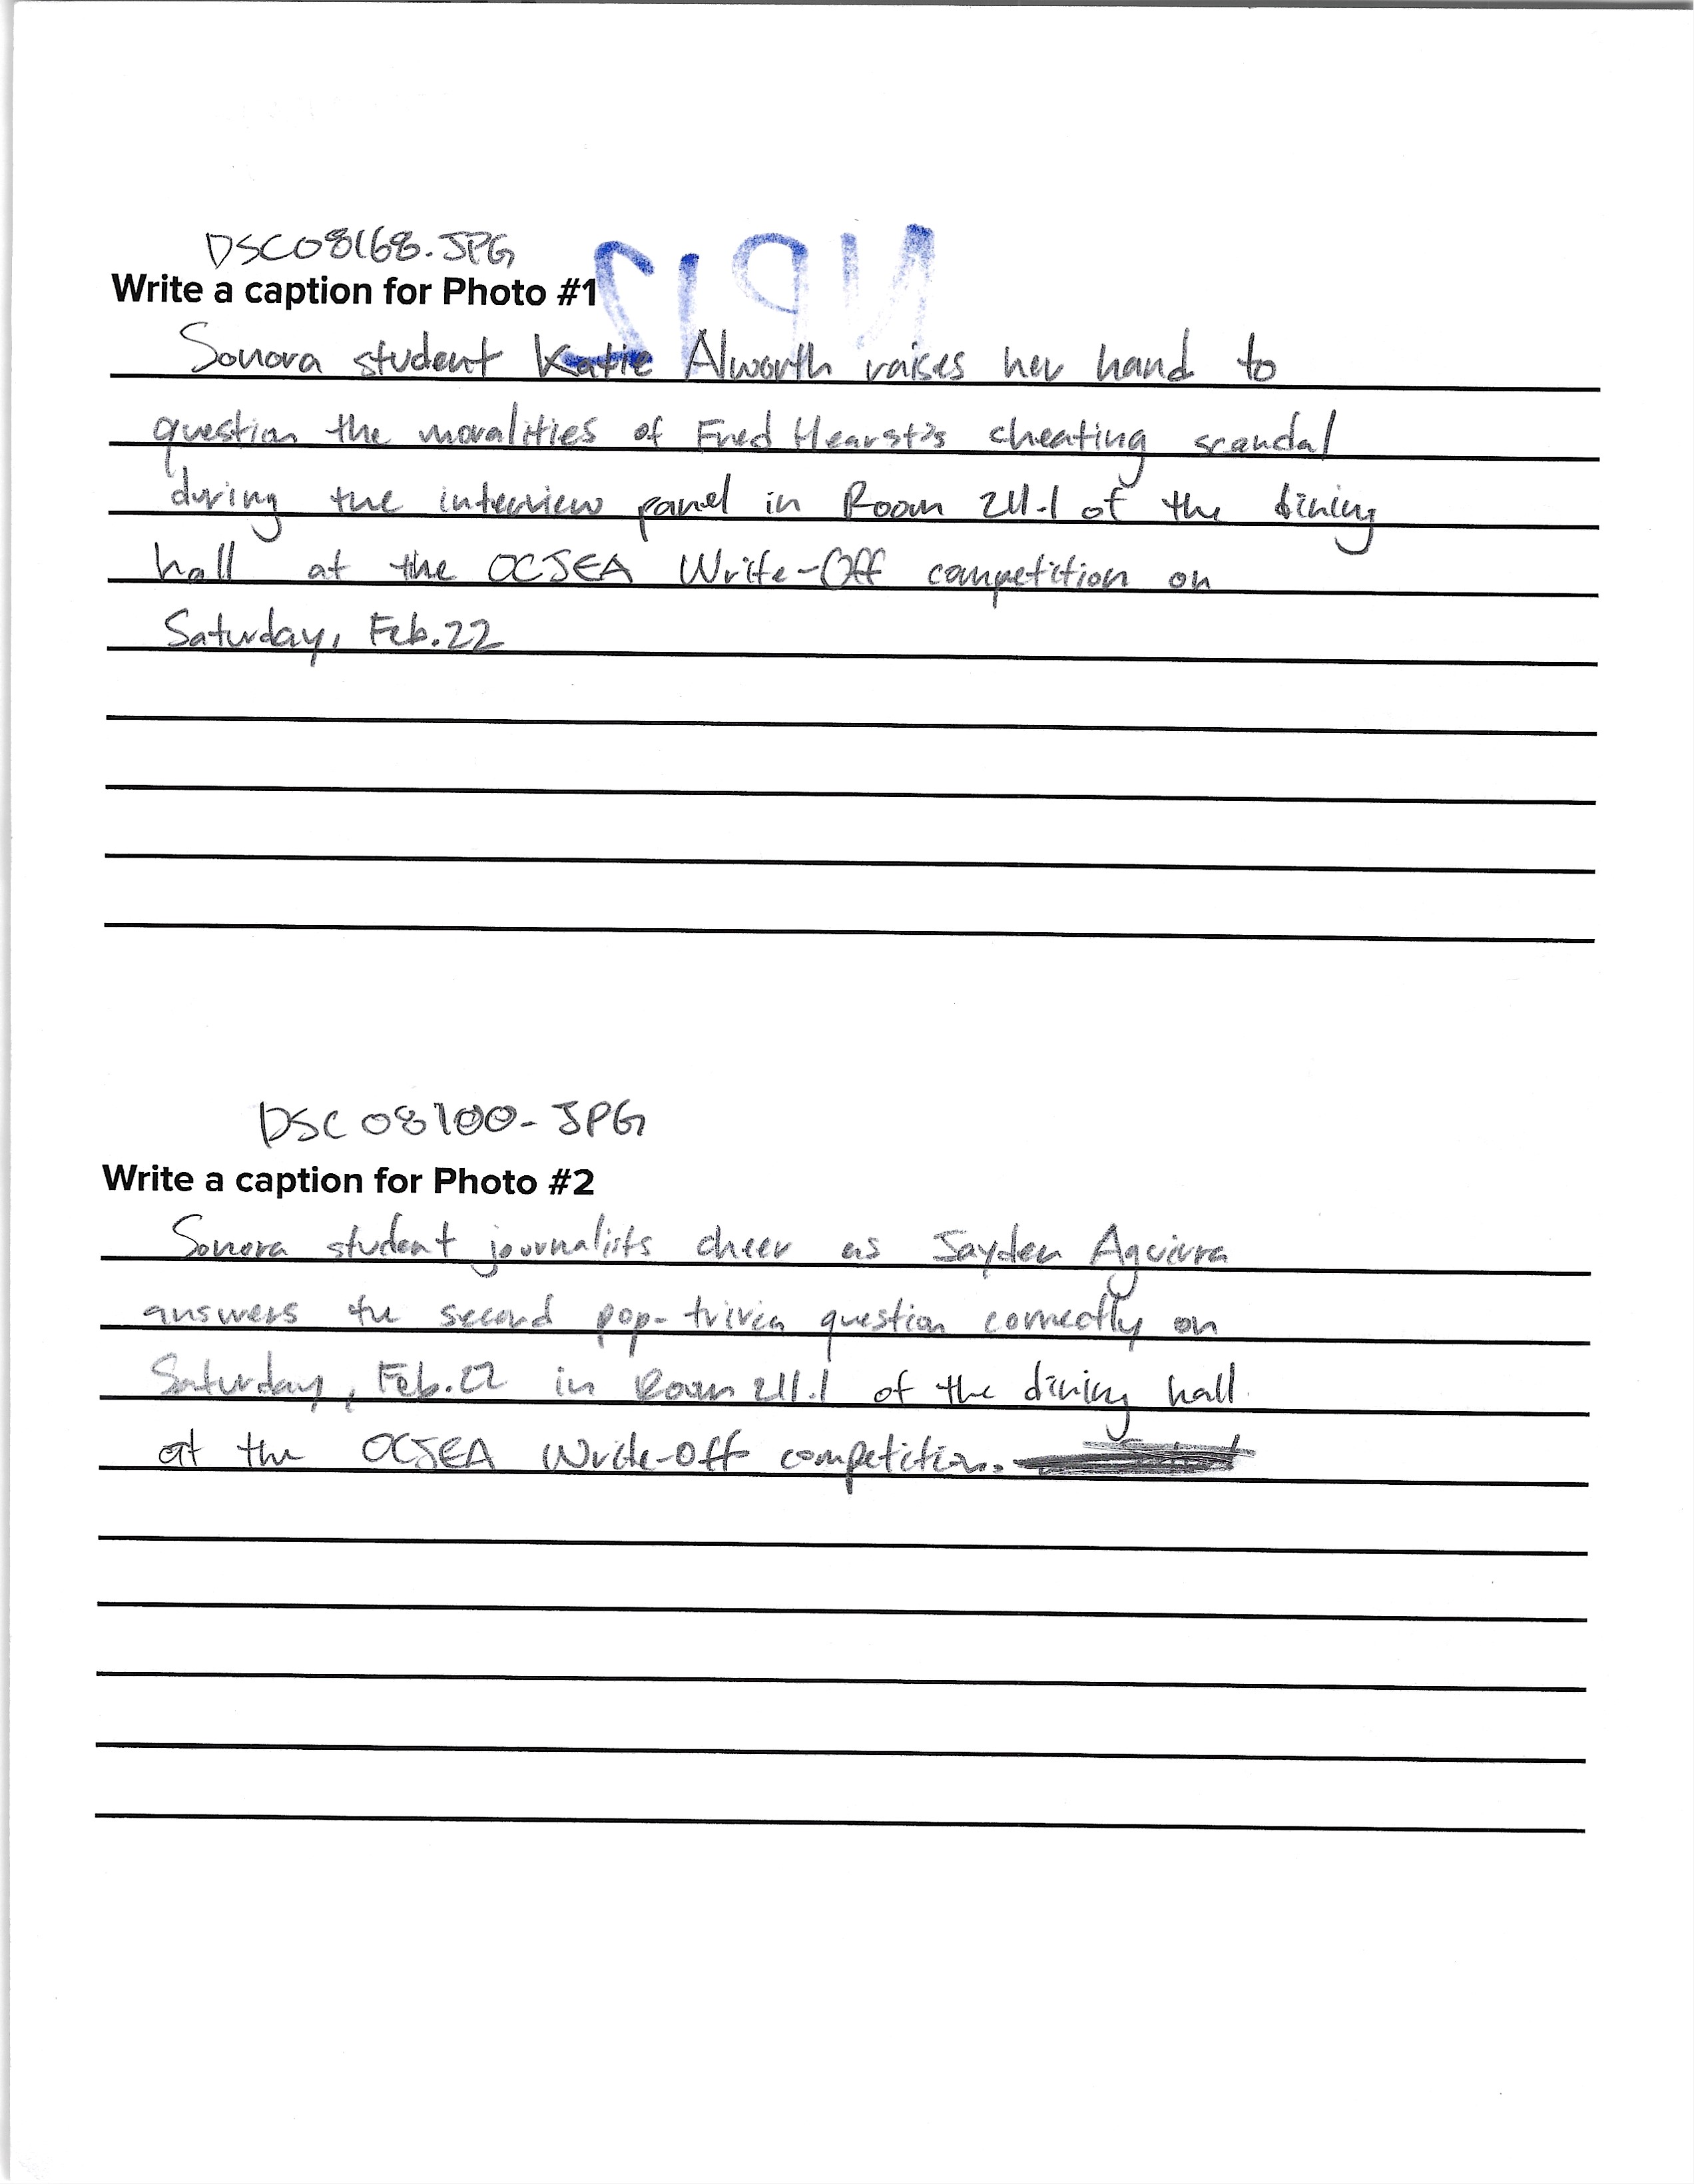 DSC08168.JPG
Write a caption for Photo #1
NP12
Sonora student Katie Alworth raises her hand to
question the moralities of Fred Hearst's cheating scandal
during the interview panel in Room 211.1 of the dining
hall at the OCJEA Write-Off competition on
Saturday, Feb. 22
DSC 08100-JPG
Write a caption for Photo #2
Sonora student journalists cheer as Jayden Aguirra
answers the second pop-trivia question correctly on
Saturday, Feb. 22 in Room 211.1 of the dining hall
at the OCJEA Write-Off competition.